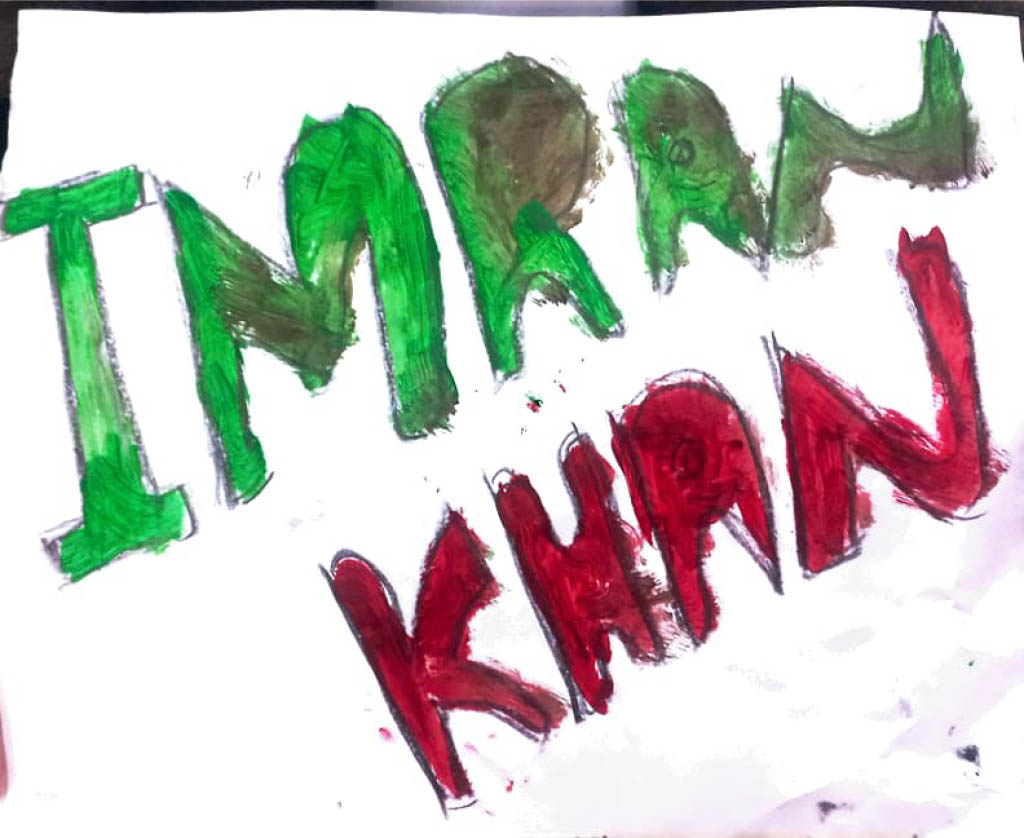 IMRAN
KHAN